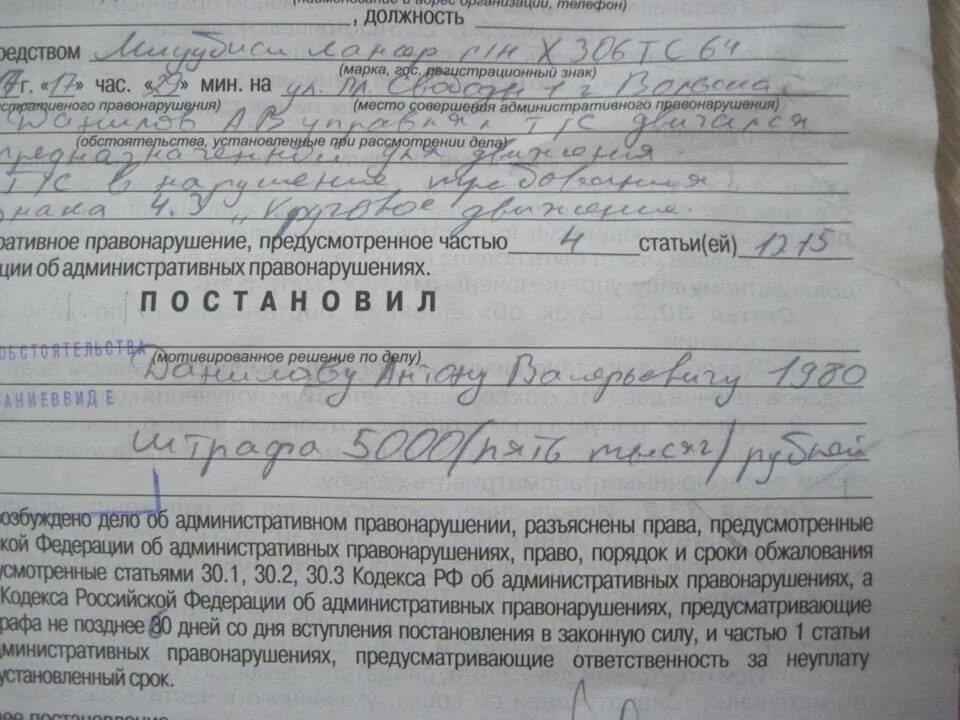 (наименование и адрес организации, телефон)
, должность
редством Мицубиси лансер г/н Х306ТС64
(марка, гос. регистрационный знак)
г. «17» час. «29» мин. на ул. М. Свободы г Вольска,
истративного правонарушения) (место совершения административного правонарушения)
Данилов А.В управляя Т/С двигался
(обстоятельства, установленные при рассмотрении дела)
предназначенной для движения
Т/С в нарушение требования
знака 4.3 "Круговое движение.
ративное правонарушение, предусмотренное частью 4 статьи(ей) 12 15
ции об административных правонарушениях.
ПОСТАНОВИЛ
ОБСТОЯТЕЛЬСТВА
(мотивированное решение по делу)
Данилову Антону Валерьевичу 1980
АНИЕ В ВИДЕ
штрафа 5000 (пять тысяч) рублей
возбуждено дело об административном правонарушении, разъяснены права, предусмотренные
кой Федерации об административных правонарушениях, право, порядок и сроки обжалования
усмотренные статьями 30.1, 30.2, 30.3 Кодекса РФ об административных правонарушениях, а
Кодекса Российской Федерации об административных правонарушениях, предусматривающие
рафа не позднее 60 дней со дня вступления постановления в законную силу, и частью 1 статьи
дминистративных правонарушениях, предусматривающие ответственность за неуплату
установленный срок.
ее постановление